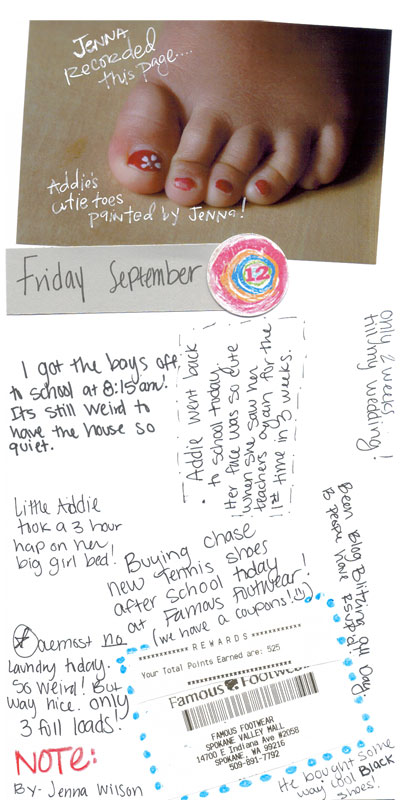 Jenna
Recorded
this page....
Addie's
cutie toes
painted by Jenna!
Friday September 12
I got the boys off
to school at 8:15am!
Its still weird to
have the house so
quiet.
Addie went back
to school today.
Her face was so cute
when she saw her
teachers again for the
1st time in 3 weeks.
only 2 weeks
till my wedding!
Little Addie
took a 3 hour
nap on her
big girl bed!
Buying chase
new Tennis shoes
after school today
at Famous Footwear!
(we have a coupons!)
Been Blog Blitzing all Day
to people
Almost no
Laundry today.
So weird! But
way nice. only
3 full loads!
NOTE:
By- Jenna Wilson
************ REWARDS ************
Your Total Points Earned are: 525
Famous Footwear
FAMOUS FOOTWEAR
SPOKANE VALLEY MALL
14700 E Indiana Ave #2058
SPOKANE, WA 99216
509-891-7792
He bought some
way cool Black
shoes!